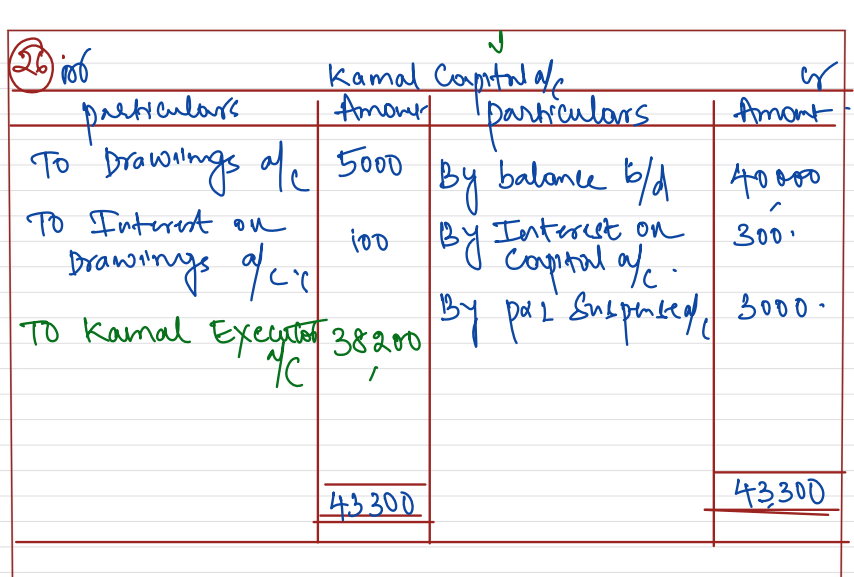 26 Dr Kamal Capital a/c Cr
particulars Amount particulars Amount
To Drawings a/c 5000 By balance b/d 40000
To Interest on Drawings a/c 100 By Interest on Capital a/c. 300.
To Kamal Executor a/c 38200 By P&L Suspense a/c 3000.
43300 43300